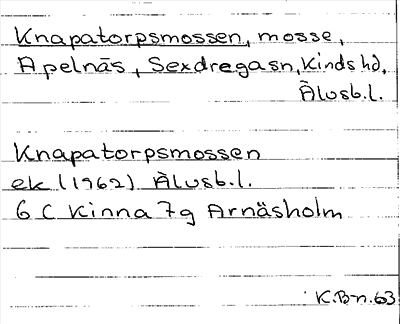 Knapatorpsmossen, mosse,
Apelnäs, Sexdregasn, Kinds hd,
Älvsb.l.
Knapatorpsmossen
ek (1962) Älvsb.l.
6 C Kinna 7g Arnäsholm
K.B-n.63